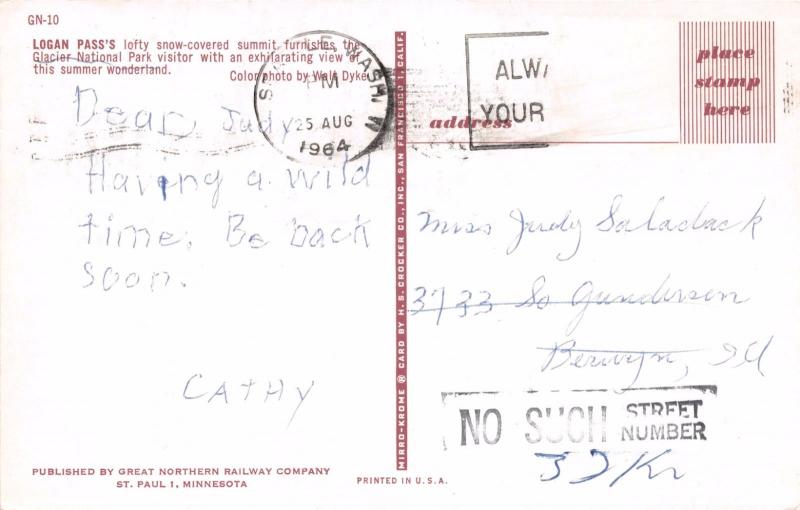 GN-10
LOGAN PASS'S lofty snow-covered summit furnishes the
Glacier National Park visitor with an exhilarating view of
this summer wonderland. Color photo by Walt Dyke
Dear Judy
Having a wild
time. Be back
soon.
CATHY
PUBLISHED BY GREAT NORTHERN RAILWAY COMPANY
ST. PAUL 1, MINNESOTA
PRINTED IN U.S.A.
MIRRO-KROME ® CARD BY H. S. CROCKER CO., INC., SAN FRANCISCO 1, CALIF.
WASH
PM
25 AUG
1964
ALWA
YOUR
address
place
stamp
here
Miss Judy Saladack
3733 So Gunderson
Berwyn, Ill
NO SUCH STREET
NUMBER